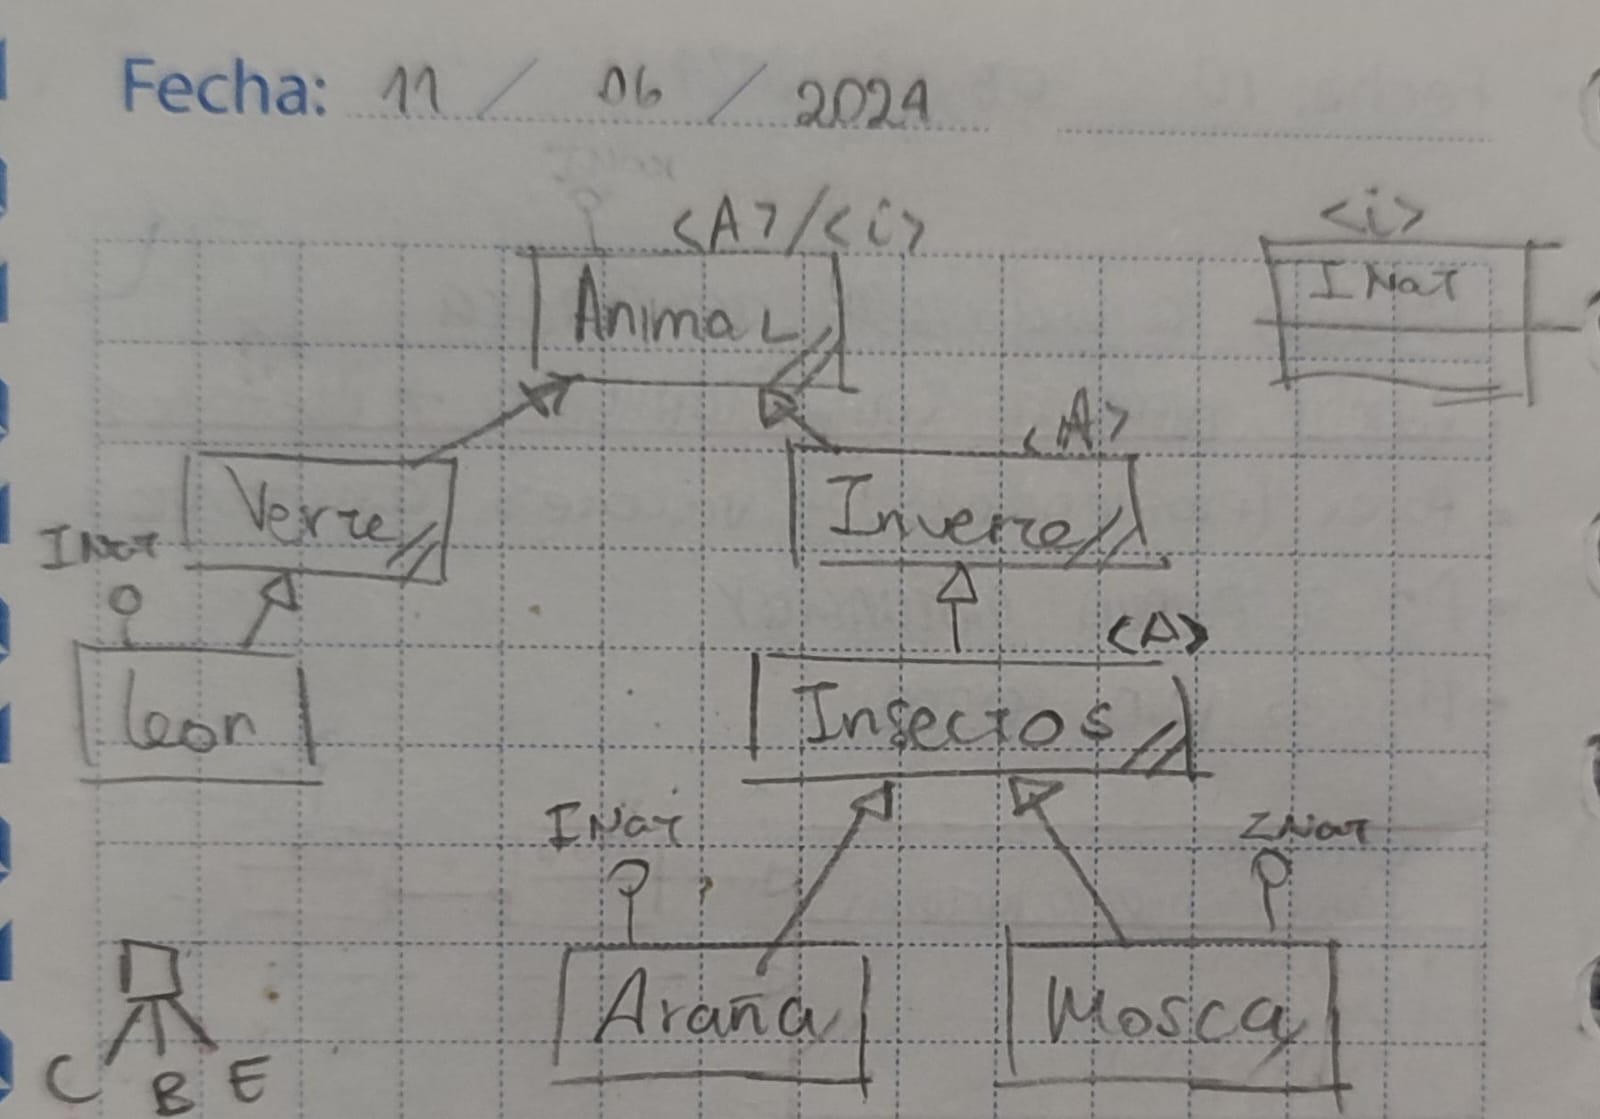 Fecha: 11 / 06 / 2024
<A>/<i>
<i>
Animal
INat
<A>
Verte
Inverte
INat
<A>
Leon
Insectos
INat
INat
Araña
Mosca
C B E